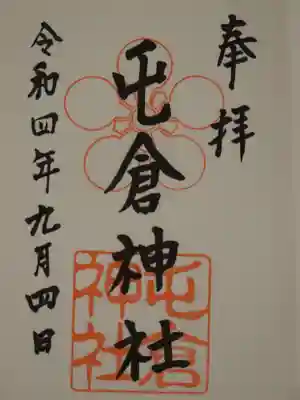 奉拝
屯倉神社
令和四年九月四日
屯倉
神社